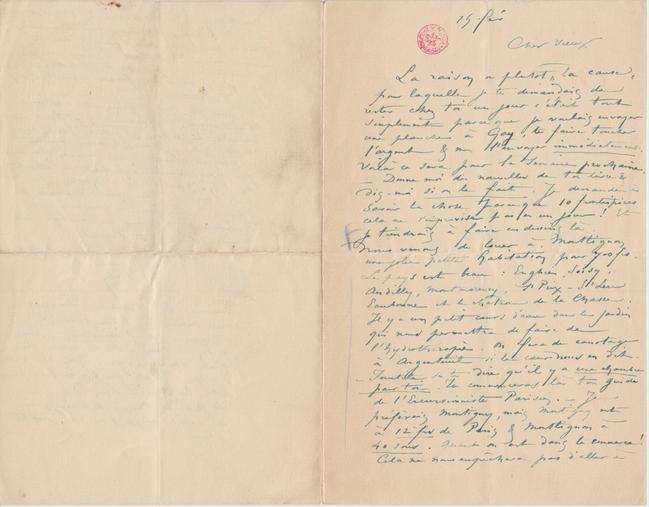 15 fév
Cher vieux
La raison ou plutôt, la cause,
pour laquelle je te demandais de
rester chez toi un jour c'était tout
simplement parce que je voulais envoyer
une planche à Guy, te faire toucher
l'argent & me l'envoyer immédiatement.
Voilà ce sera pour la semaine prochaine.
Donne moi des nouvelles de ton livre &
Dis-moi si on le fait. Je demande
savoir la chose parce que 10 frontispices
cela ne s'improvise pas en un jour! Et
je tiendrais à faire ces dessins là
Nous venons de louer à Montlignon
une jolie petite habitation pour
Le pays est beau: Enghien, Soisy,
Andilly, Montmorency, St Prix - St Leu
Eaubonne et le château de la Chasse.
Il y a un petit cours d'eau dans le jardin
qui nous permettra de faire de
l'hydrothérapie. On fera du canotage
à Argenteuil si le cœur nous en dit.
Inutile de te dire qu'il y a une chambre
par toi. Tu commenceras là ton guide
de l'Excursionniste Parisien. - Je
préférais Martigny, mais Martigny est
à 12 frs de Paris & Montlignon à
40 sous. Quand on est dans le commerce!
Cela ne nous empêchera pas d'aller à